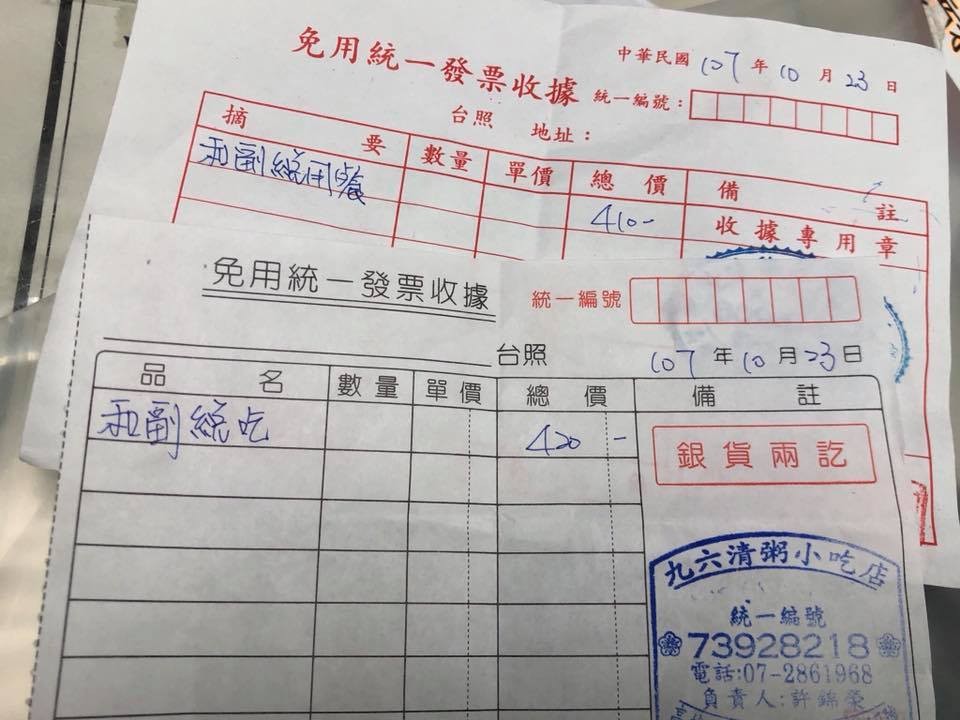 免用統一發票收據
中華民國 107 年 10 月 23 日
統一編號：
台照 地址：
摘要 數量 單價 總價 備註
和副總用餐 410-
收據專用章
免用統一發票收據
統一編號
台照 107 年 10 月 23 日
品名 數量 單價 總價 備註
和副總吃 420 -
銀貨兩訖
九六清粥小吃店
統一編號
73928218
電話:07-2861968
負責人:許錦榮